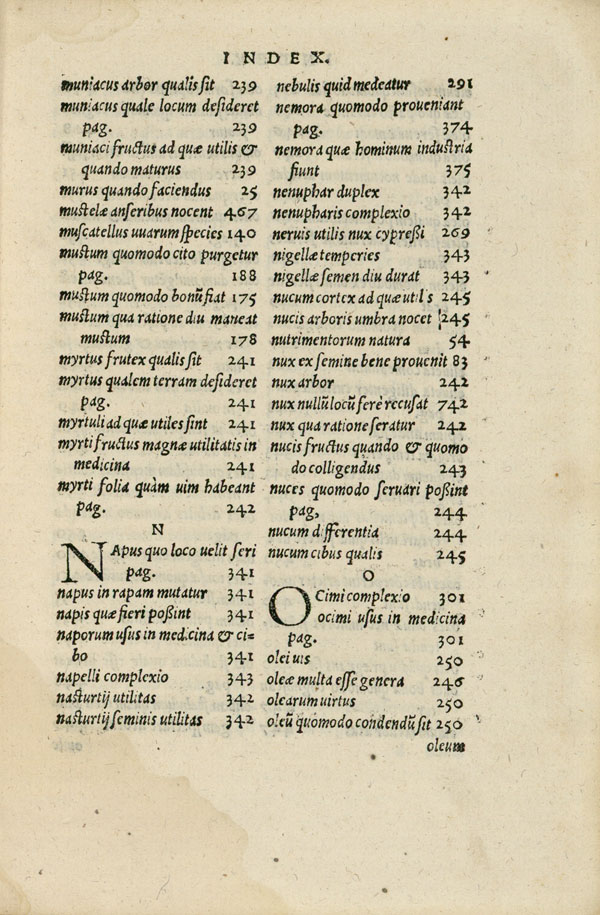 INDEX.
muniacus arbor qualis sit 239
muniacus quale locum desideret
pag. 239
muniaci fructus ad quæ utilis &
quando maturus 239
murus quando faciendus 25
mustelæ anseribus nocent 467
muscatellus uuarum species 140
mustum quomodo cito purgetur
pag. 188
mustum quomodo bonũ fiat 175
mustum qua ratione diu maneat
mustum 178
myrtus frutex qualis sit 241
myrtus qualem terram desideret
pag. 241
myrtuli ad quæ utiles sint 241
myrti fructus magnæ utilitatis in
medicina 241
myrti folia quàm uim habeant
pag. 242
N
NApus quo loco uelit seri
pag. 341
napus in rapam mutatur 341
napis quæ fieri poßint 341
naporum usus in medicina & ci=
bo 341
napelli complexio 343
nasturtij utilitas 342
nasturtij seminis utilitas 342
nebulis quid medeatur 291
nemora quomodo proueniant
pag. 374
nemora quæ hominum industria
fiunt 375
nenuphar duplex 342
nenupharis complexio 342
neruis utilis nux cypreßi 269
nigellæ temperies 343
nigellæ semen diu durat 343
nucum cortex ad quæ util s 245
nucis arboris umbra nocet 245
nutrimentorum natura 54
nux ex semine bene prouenit 83
nux arbor 242
nux nullũ locũ ferè recusat 742
nux qua ratione seratur 242
nucis fructus quando & quomo
do colligendus 243
nuces quomodo seruari poßint
pag, 244
nucum differentia 244
nucum cibus qualis 245
O
OCimi complexio 301
ocimi usus in medicina
pag. 301
olei uis 250
oleæ multa esse genera 246
olearum uirtus 250
oleũ quomodo condendũ sit 250
oleum